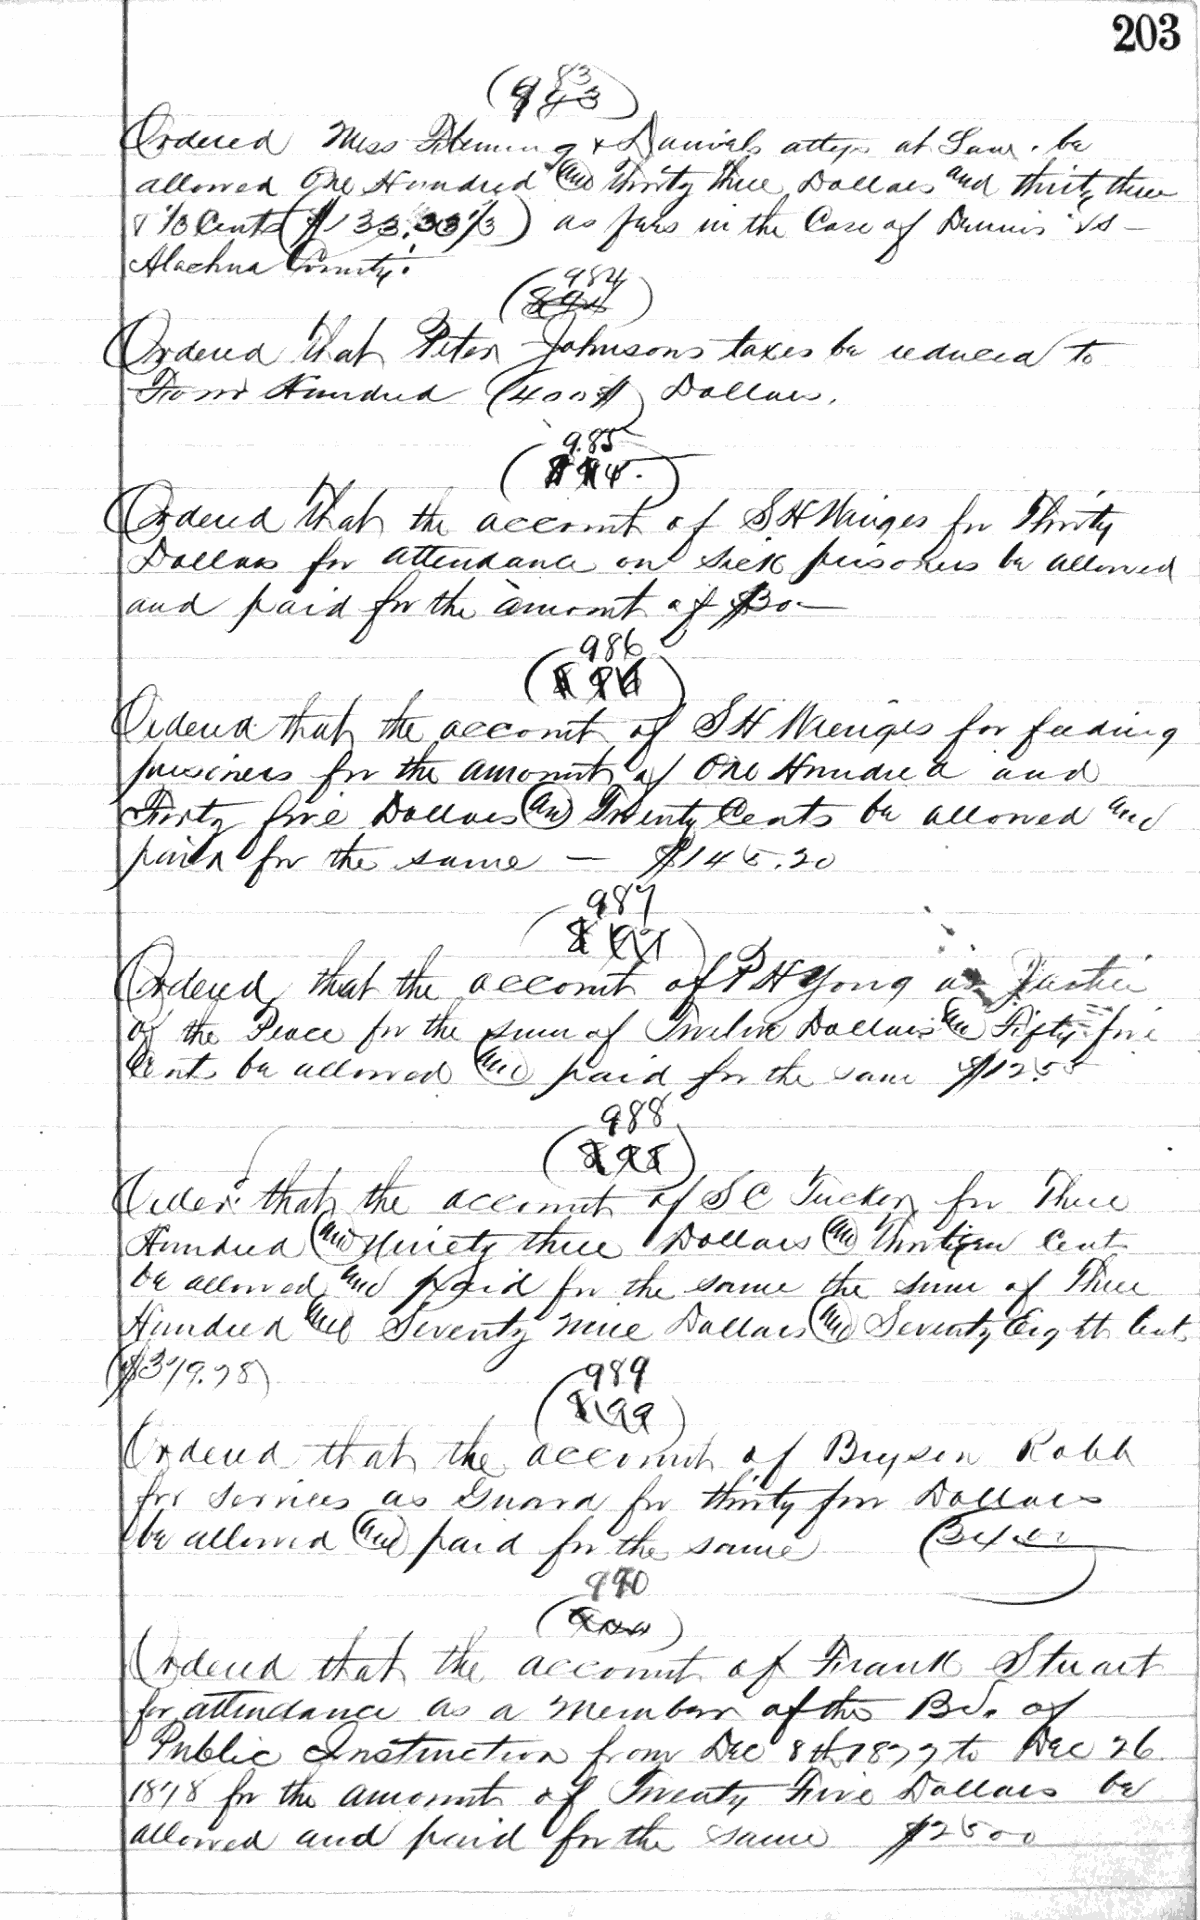 203
(983)
Ordered Mess Fleming & Daniels attys at Law. be
allowed One Hundred and Thirty Three Dollars and thirty three
& 1/3 Cents ($133.33 1/3) as fees in the Case of Dennis vs
Alachua County.
984
(894)
Ordered that Peter Johnsons taxes be reduced to
Four Hundred (400$) Dollars.
985
Ordered that the account of S H Wienges for Thirty
Dollars for attendance on sick prisoners be allowed
and paid for the amount of $30 —
986
(896)
Ordered that the account of S H Wienges for feeding
prisoners for the amount of One Hundred and
Forty five Dollars and Twenty Cents be allowed and
paid for the same — $145.20
987
(897)
Ordered that the account of P H Yong as Justice
of the Peace for the sum of Twelve Dollars and Fifty five
Cents be allowed and paid for the same $12.55
988
(898)
Order that the account of S C Tucker for Three
Hundred and Ninety three Dollars and Thirteen Cent
be allowed and paid for the same the sum of Three
Hundred and Seventy Nine Dollars and Seventy Eight Cents
($379.78)
989
(899)
Ordered that the account of Bryson Robb
for Services as Guard for thirty four Dollars
be allowed and paid for the same (34.00
990
(900)
Ordered that the account of Frank Stuart
for attendance as a Member of the Bd. of
Public Instruction from Dec 8th 1877 to Dec 26
1878 for the amount of Twenty Five Dollars be
allowed and paid for the same $2500